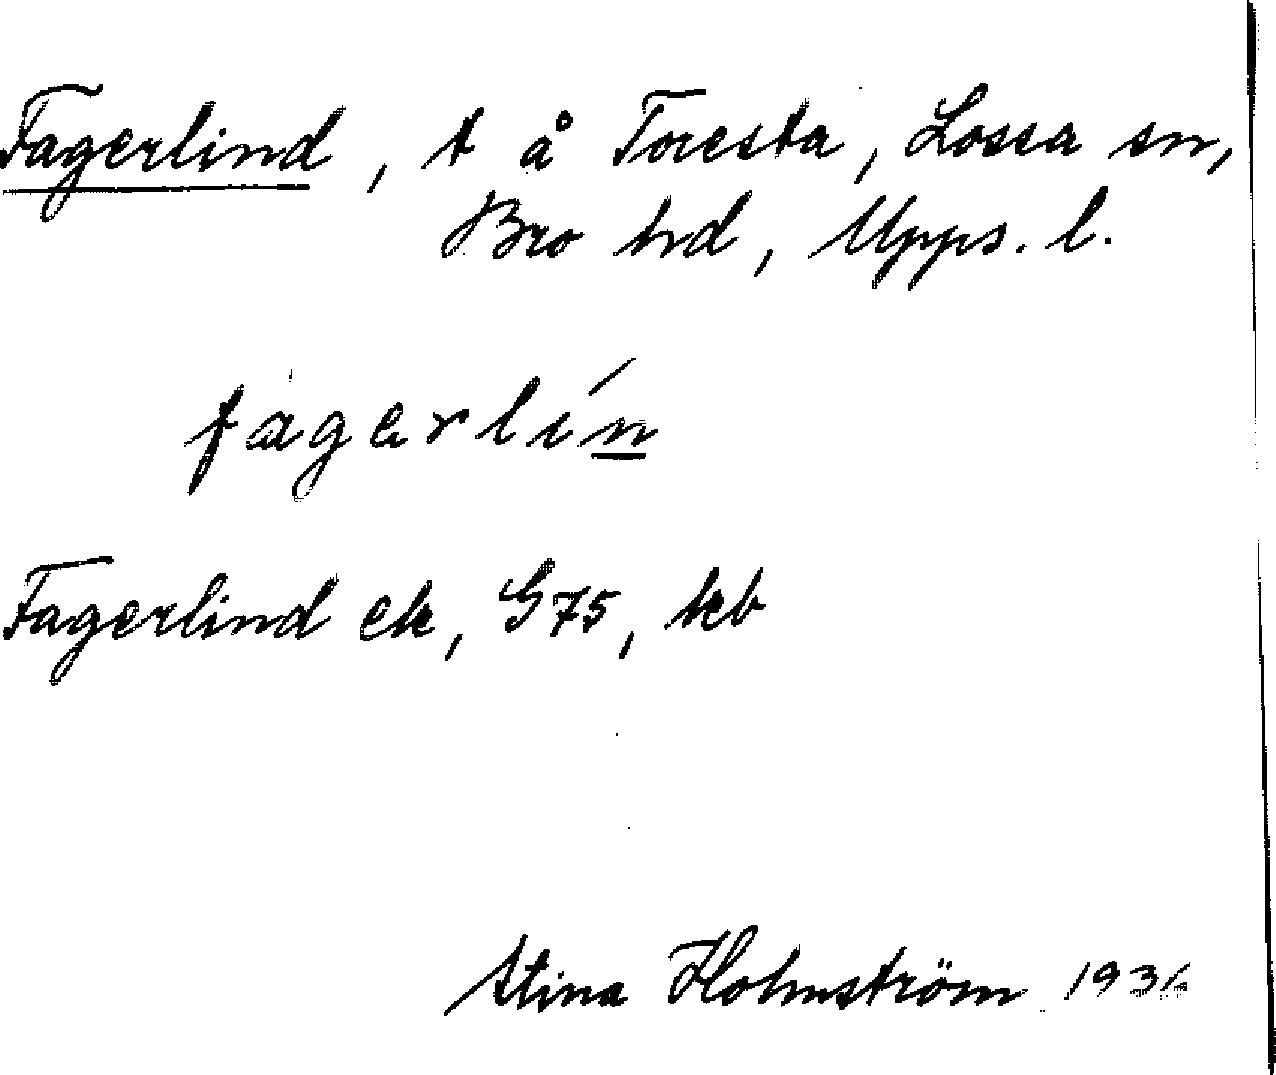 Fagerlind, t å Toresta, Lossa sn,
Bro hd, Upps. l.
fagerlín
Fagerlind ek, G75, kb
Stina Holmström 1936